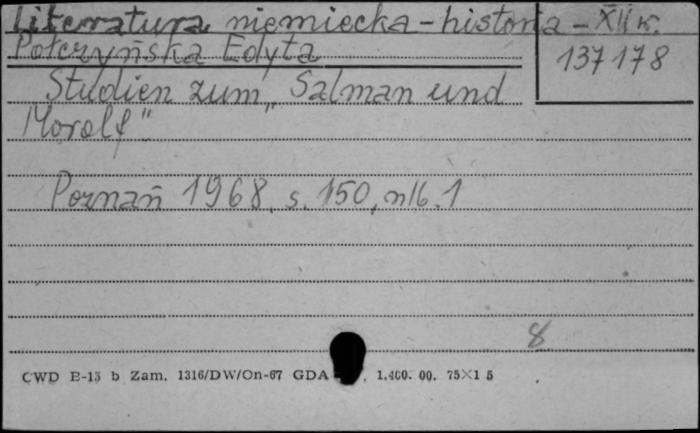 Literatura niemiecka - historia - XII w.
Połczyńska Edyta
137178
Studien zum „Salman und
Morolf"
Poznań 1968, s. 150, nlb. 1
8
CWD E-13 b Zam. 1316/DW/On-67 GDA 1.400.00. 75×1 5